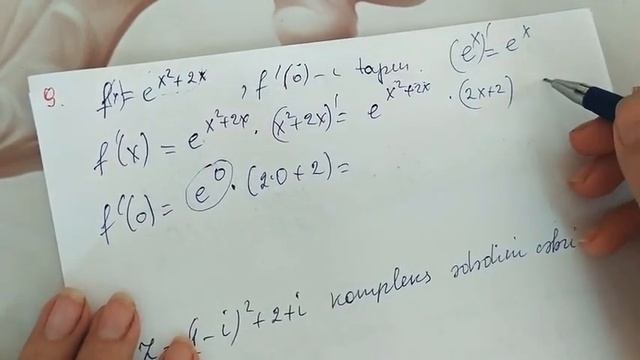 9. f(x)=e^{x²+2x}, f'(0)-ı tapın. (e^x)'=e^x
f'(x)=e^{x²+2x}·(x²+2x)'=e^{x²+2x}·(2x+2)
f'(0)=e^0·(2·0+2)=
z=(1-i)²+2+i kompleks ədədini cəbri